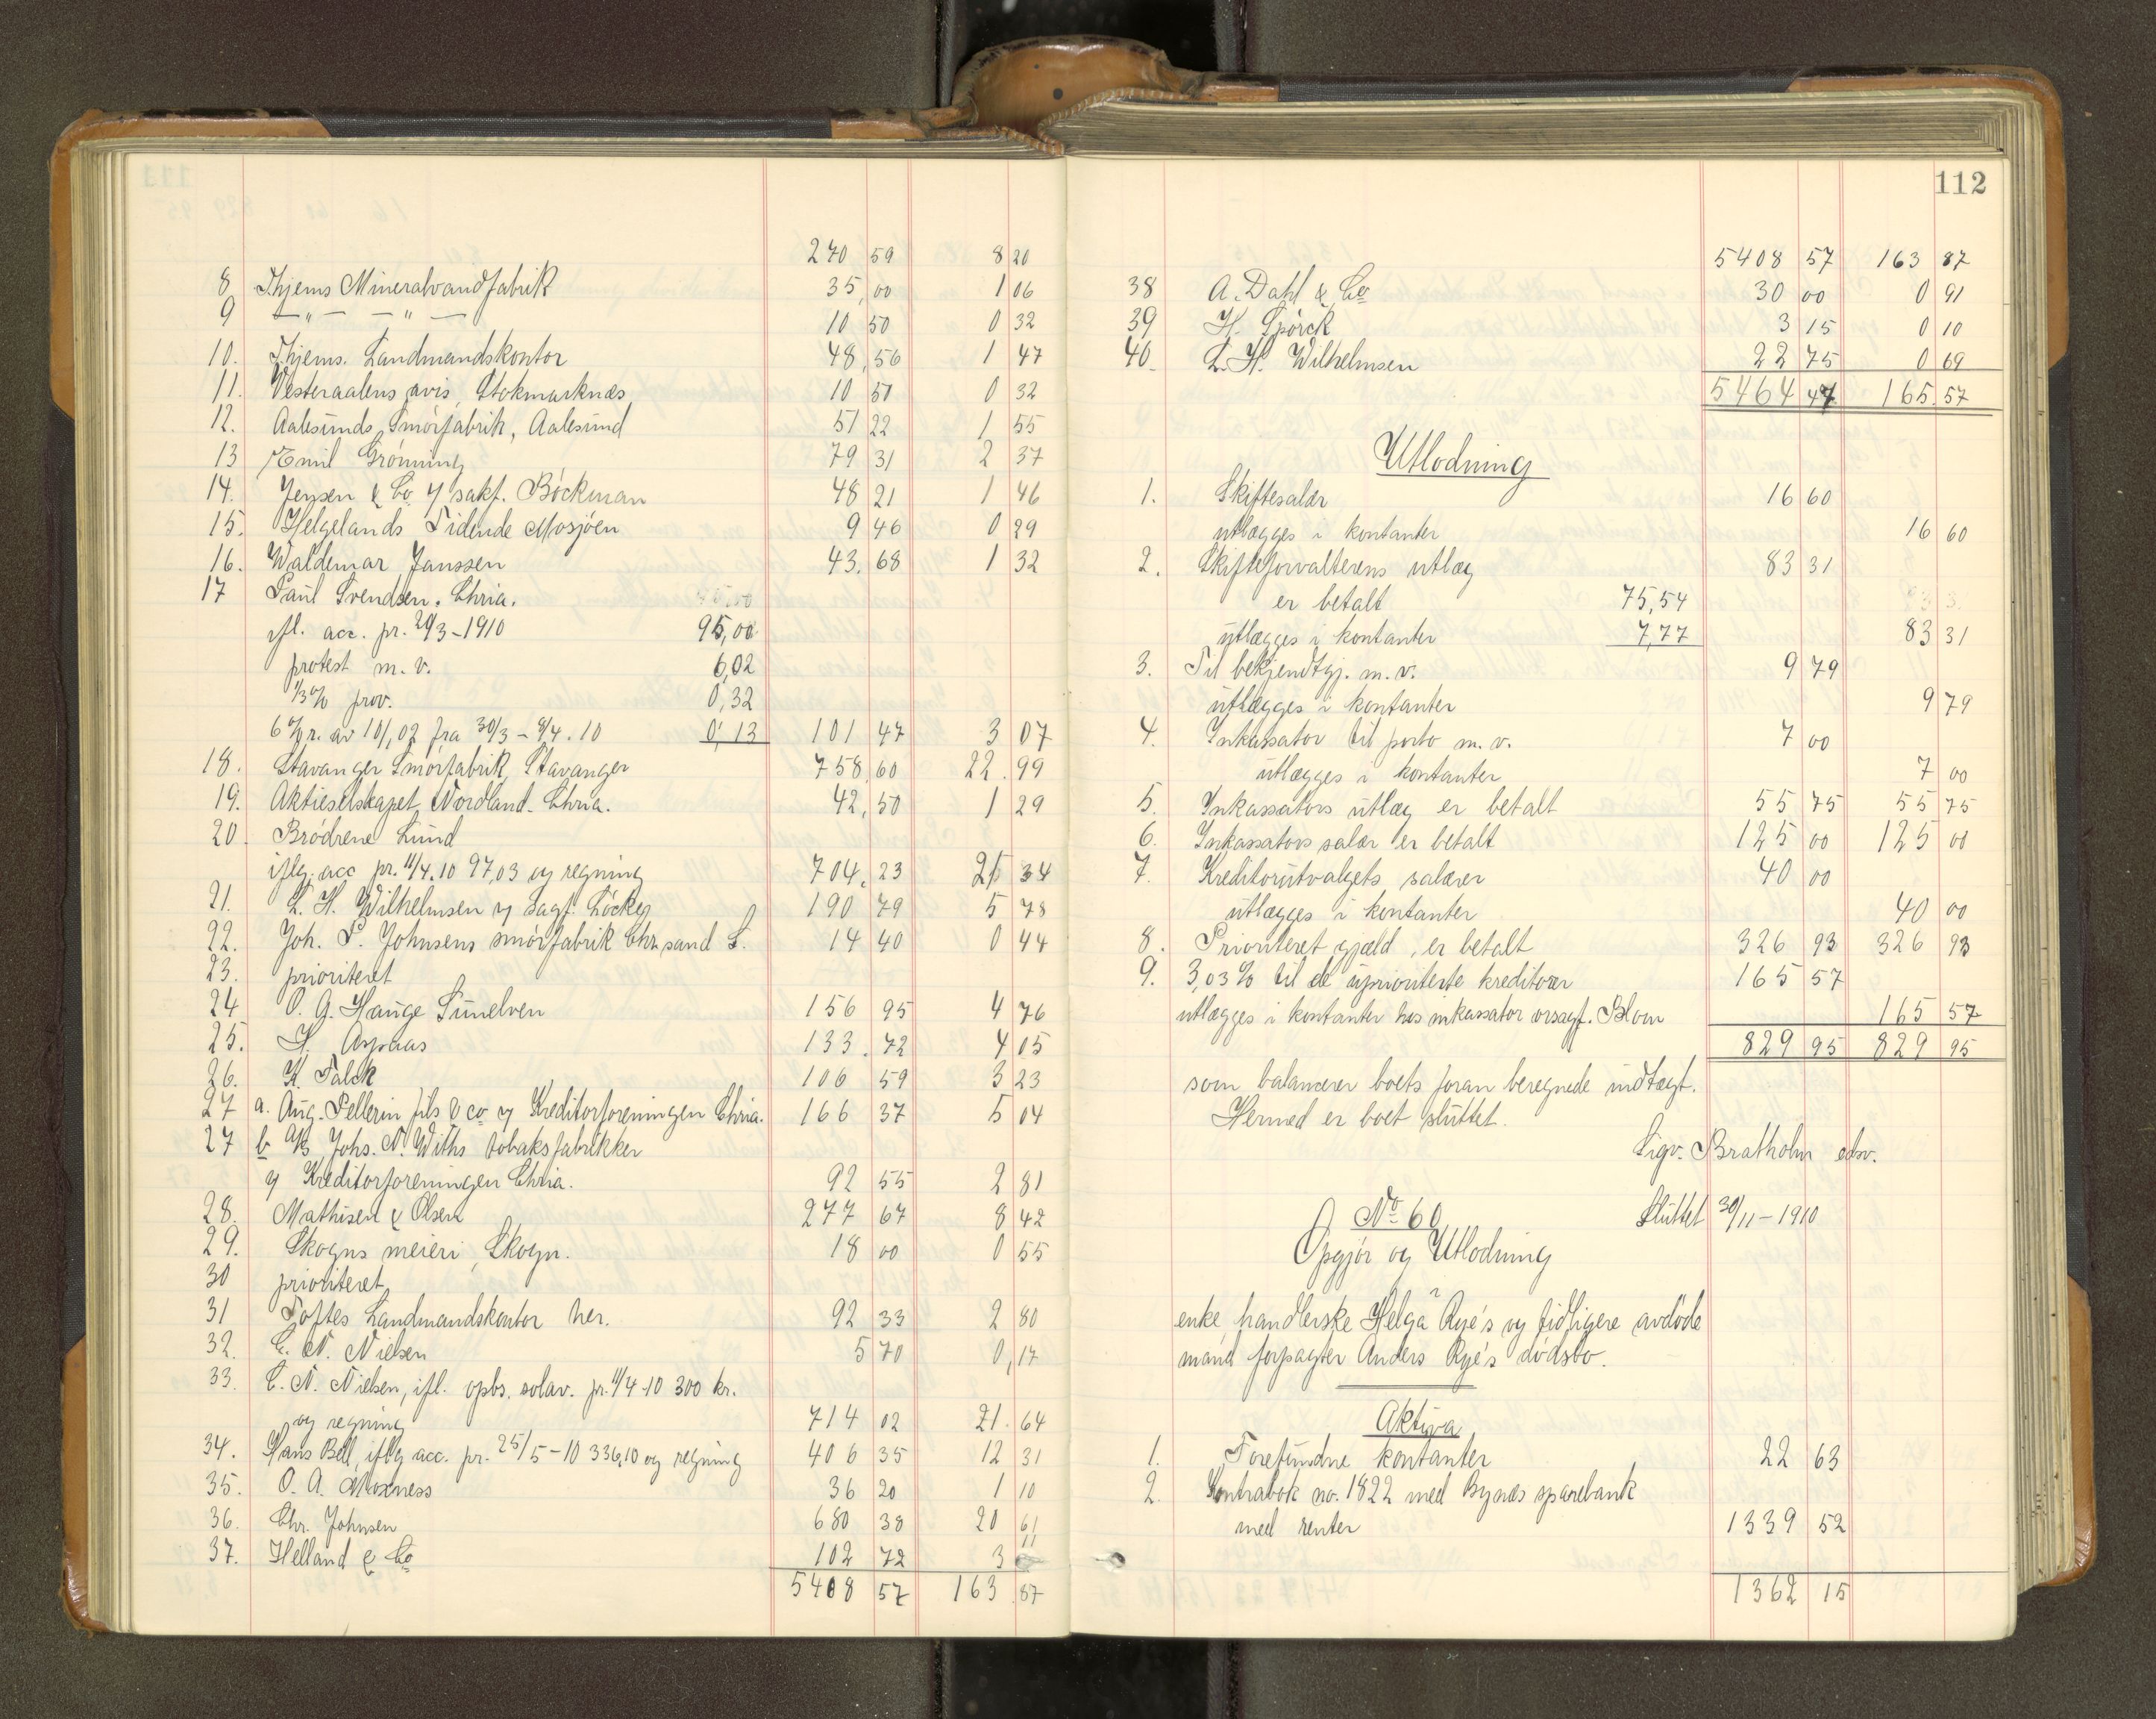 270 59 8 20
8 Thjems Mineralvandfabrik 35,00 1 06
9 — " — — " — 10 50 0 32
10. Thjems. Landmandskontor 48,56 1 47
11. Vesteraalens avis, Stokmarknæs 10 50 0 32
12. Aalesunds Smörfabrik, Aalesund 51 22 1 55
13 Emil Grönning 79 31 2 37
14. Jensen & Co v/ sakf. Böckman 48 21 1 46
15. Helgelands Tidende Mosjöen 9 46 0 29
16. Waldemar Janssen 43.68 1 32
17 Paul Svendsen. Chria.
ifl. acc. pr. 29/3-1910 95,00
protest m. v. 6,02
1/3% prov. 0,32
6% r. av 101,02 fra 30/3 - 8/4.10 0,13 101 47 3 07
18. Stavanger Smörfabrik, Stavanger 758,60 22.99
19. Aktieselskapet Nordland. Chria. 42,50 1 29
20. Brödrene Lund
iflg. acc pr. 11/4.10 97,03 og regning 704.23 21 34
21. L. H. Wilhelmsen v/ sagf. Löcke 190 79 5 78
22. Joh. P. Johnsens smörfabrik Chr.sand S. 14 40 0 44
23. prioriteret
24 O. G. Hauge Sunelven 156 95 4 76
25. H. Aspaas 133.72 4 05
26. K. Falck 106 59 3 23
27 a. Aug. Pellerin fils & co v/ Kreditorforeningen Chria. 166 37 5 04
27 b A/S Johs. N. Withs tobaksfabrikker
v/ Kreditorforeningen Chria. 92 55 2 81
28. Mathisen & Olsen 277 67 8 42
29. Skogns meieri, Skogn. 18 00 0 55
30 prioriteret
31 Toftes Landmandskontor her. 92 33 2 80
32. C. N. Nielsen 5 70 0,17
33. C. N. Nielsen, ifl. opbs. solav. pr. 11/4-10 300 kr.
og regning 714 02 21.64
34. Hans Bell, iflg acc. pr. 25/5-10 336,10 og regning 406 35 12 31
35. O. A. Moxness 36 20 1 10
36. Chr. Johnsen 680 38 20 61
37. Helland & Co 102 72 3 11
5408 57 163.87
112
5408 57 163 87
38 A. Dahl & Co 30 00 0 91
39 H. Spörck 3 15 0 10
40. L. H. Wilhelmsen 22 75 0 69
5464 47 165.57
Utlodning
1. Skiftesalær 16 60
utlægges i kontanter 16 60
2. Skifteforvalterens utlæg 83 31
er betalt 75,54
utlægges i kontanter 7,77 83 31
3. Til bekjendtgj. m. v. 9 79
utlægges i kontanter 9 79
4. Inkassator til porto m. v. 7 00
utlægges i kontanter 7 00
5. Inkassators utlæg er betalt 55 75 55 75
6. Inkassators salær er betalt 125 00 125 00
7. Kreditorutvalgets salærer 40 00
utlægges i kontanter 40 00
8. Prioriteret gjæld, er betalt 326 93 326 93
9. 3,03% til de uprioriterte kreditorer 165 57
utlægges i kontanter hos inkassator orsagf. Blom 165 57
829 95 829 95
som balancerer boets foran beregnede indtægt.
Hermed er boet sluttet.
Sigv. Bratholm edsv.
No 60 Sluttet 30/11-1910
Opgjör og Utlodning
i
enke, handlerske Helga Rye's og tidligere avdöde
mand forpagter Anders Rye's dödsbo.
Aktiva
1. Forefundne kontanter 22 63
2. Kontrabok no. 1822 med Bynæs sparebank
med renter 1339 52
1362 15